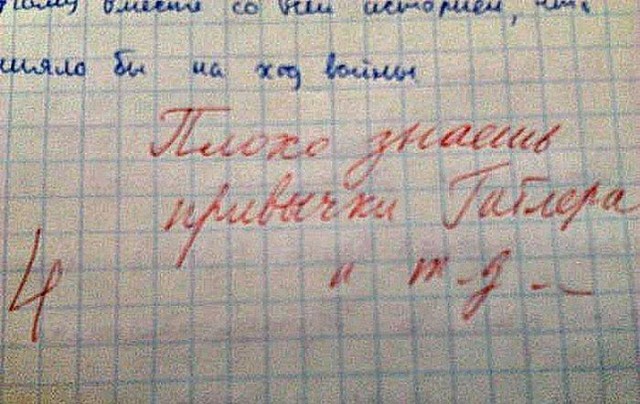 вместе со всей историей,
бы на ход войны
Плохо знаешь
привычки Гитлера
и т-д--
4